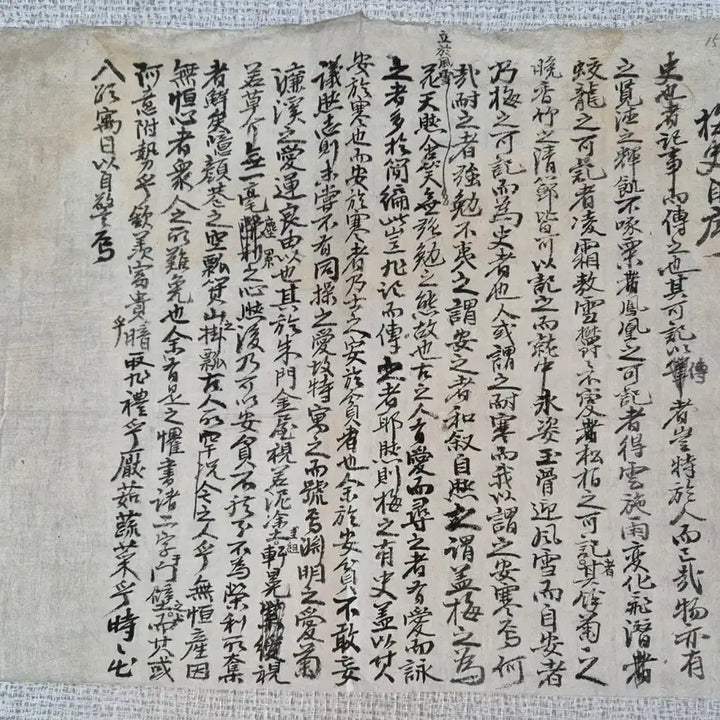 梅史自序
史也者記事而傳之也其可記以傳者豈特於人而已哉物亦有
之覽德之輝飢不啄粟者鳳凰之可記者得雲施雨變化飛潛者
蛟龍之可記者凌霜敖雪欝欝不變者松柏之可記者其餘菊之
晚香竹之清節皆可以記之而就中氷姿玉骨迎風雪而自安者
乃梅之可記而爲史者也人或謂之耐寒而我以謂之安寒焉何
哉耐之者強勉不夷之謂安之者和叙自然之謂盖梅之爲
立於風雪
花天然含笑無強勉之態故也古之人有愛而尋之者有愛而詠
之者多於簡編此豈非記而傳之者耶然則梅之有史盖以其
安於寒也而安於寒者乃士之安於貧者也余於安貧不敢妄
議然志則未嘗不有同操之愛故特寓之而號焉淵明之愛菊
濂溪之愛蓮良由以也其於朱門金屋視若泥塗軒冕 視
若草芥無一毫 之心然後乃可以安貧不移不爲榮利所奪
者鮮矣噫顔巷之空瓢箕山之掛瓢古人所罕况今之人乎無恒産因
無恒心者衆人之所難免也余有是之懼書諸二字于門壁而其或
阿意附勢乎欽羡富貴乎暗取非禮乎厭茹蔬菜乎時時出
入於寓目以自警焉